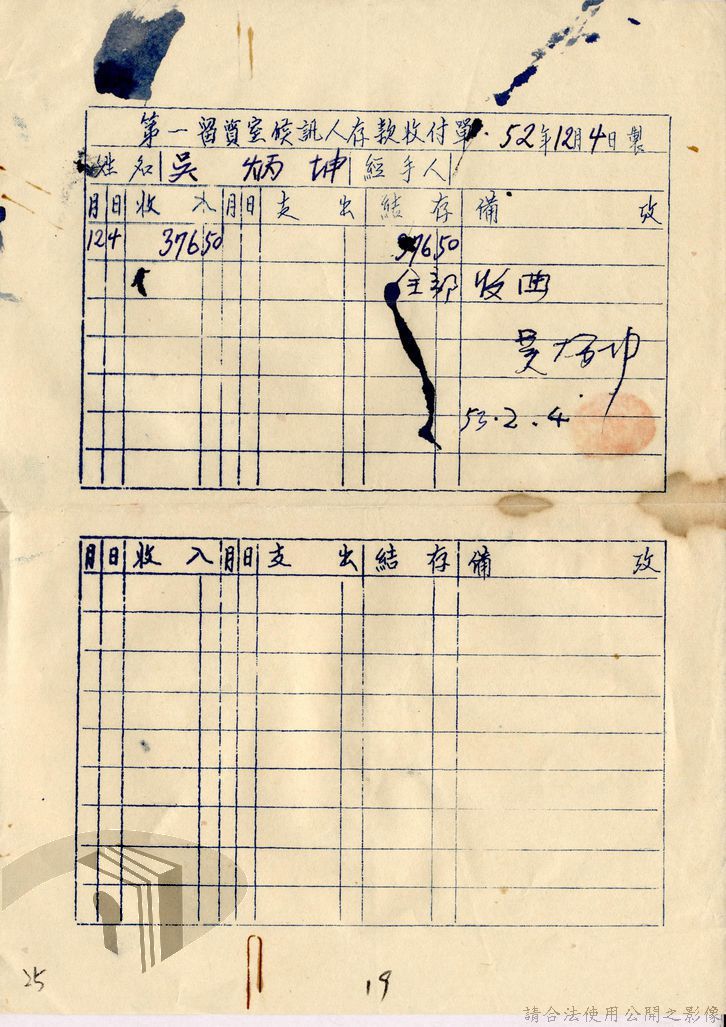 第一留質室候訊人存款收付單 52年12月4日製
姓名 吳炳坤 經手人
月 日 收入 月 日 支出 結存 備攷
12 4 376 50 376 50
全部收回
吳炳坤
53.2.4.
月 日 收入 月 日 支出 結存 備攷
25 19
請合法使用公開之影像